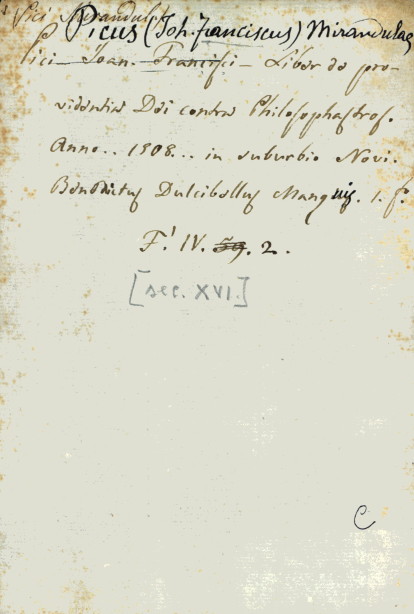 Pici Mirandul
Picus (Joh. Franciscus) Mirandulae
Pici Joan. Francisci - Liber de pro-
videntia Dei contra Philosophastros.
Anno .. 1508 .. in suburbio Novi.
Benedictus Dulcibellus Mangius. i. f.
F.' IV. 59. 2.
[sec. XVI.]
C